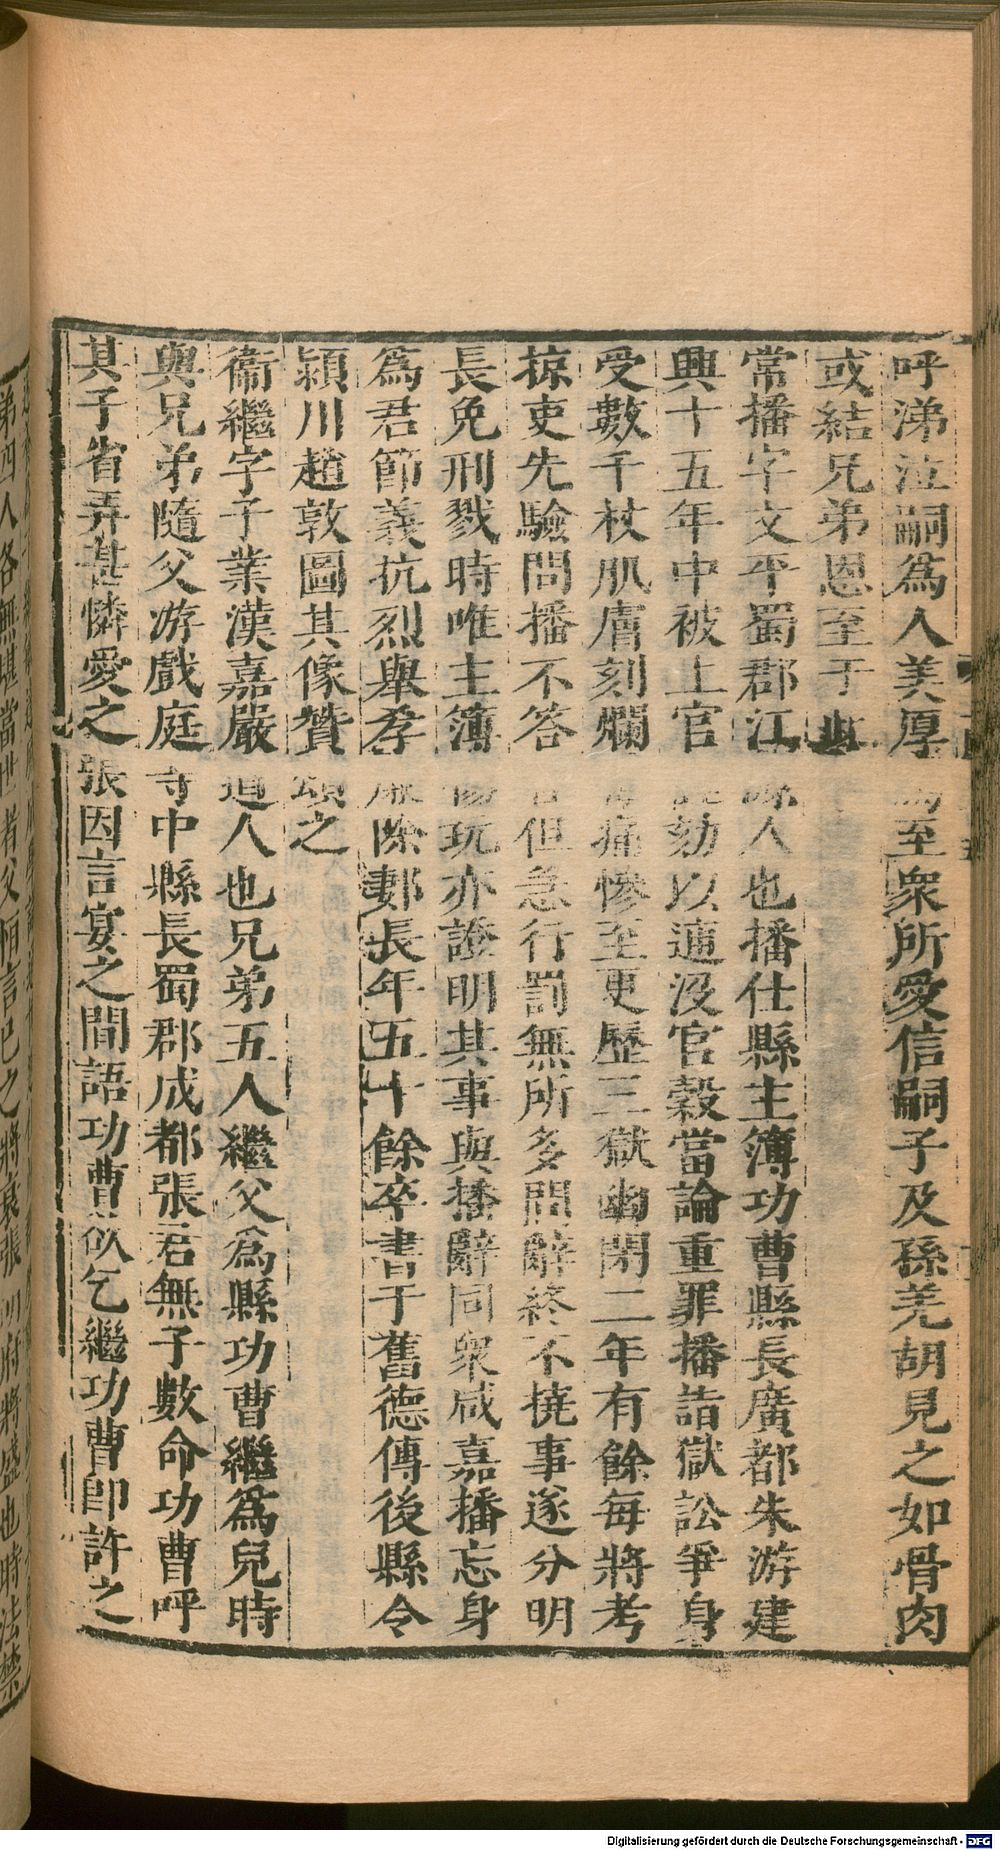 呼涕泣嗣爲人美厚至衆所愛信嗣子及孫羌胡見之如骨肉
或結兄弟恩至于此
常播字文平蜀郡江人也播仕縣主簿功曹縣長廣都朱游建
興十五年中被上官劾以逋没官穀當論重罪播詣獄訟爭身
受數千杖肌膚刻爛痛慘至更歷三獄幽閉二年有餘每將考
掠吏先驗問播不答但急行罰無所多問辭終不撓事遂分明
長免刑戮時唯主簿玩亦證明其事與播辭同衆咸嘉播忘身
爲君節義抗烈舉孝除郪長年五十餘卒書于舊德傳後縣令
潁川趙敦圖其像贊頌之
衞繼字子業漢嘉嚴道人也兄弟五人繼父爲縣功曹繼爲兒時
與兄弟隨父游戲庭寺中縣長蜀郡成都張君無子數命功曹呼
其子省弄甚憐愛之張因言宴之間語功曹欲乞繼功曹卽許之
弟四人各無堪當世者父恒言己之將衰張明府將盛也時法禁
Digitalisierung gefördert durch die Deutsche Forschungsgemeinschaft - DFG